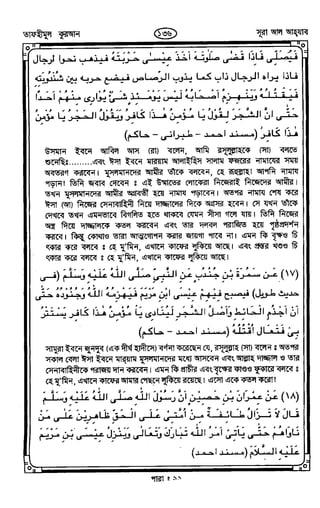 তাফহীমুল কুরআন
১৩৬
সূরা আল আহ্যাব
فَيُصَلِّى فَاِذَا قَضٰى صَلٰوتَهٗ اَخَذَ عِيْسٰى حَرْبَتَهٗ فَيَذْهَبُ نَحْوَ الدَّجَّالِ
فَاِذَا يَرَاهُ الدَّجَّالُ ذَابَ كَمَا يَذُوْبُ الرَّصَاصُ فَيَضَعُ حَرْبَتَهٗ بَيْنَ ثَنْدُوَتِهٖ
فَيَقْتُلُهٗ وَيَنْهَزِمُ اَصْحَابُهٗ لَيْسَ يَوْمَئِذٍ شَىْءٌ يُوَارِىْ مِنْهُمْ اَحَدًا
حَتّٰى اِنَّ الشَّجَرَ لَيَقُوْلُ يَا مُؤْمِنُ هٰذَا كَافِرٌ وَيَقُوْلُ الْحَجَرُ يَا مُؤْمِنُ
هٰذَا كَافِرٌ (مسند احمد - طبرانى - حاكم)
উসমান ইবনে আবিল আস (রা) বলেন, আমি রসূলুল্লাহকে (সা) বলতে
শুনেছিঃ.........এবং ঈসা ইবনে মারয়াম আলাইহিস সালাম ফজরের নামাযের সময়
অবতরণ করবেন। মুসলমানদের আমীর তাঁকে বলবেন, হে রূহুল্লাহ! আপনি নামায
পড়ান! তিনি জবাব দেবেন ঃ এই উম্মাতের লোকেরা নিজেরাই নিজেদের আমীর।
তখন মুসলমানদের আমীর অগ্রবর্তী নামায পড়াবেন। অতপর নামায শেষ করে
ঈসা (আ) নিজের সেনাবাহিনী নিয়ে দাজ্জালের দিকে অগ্রসর হবেন। সে যখন তাঁকে
দেখবে তখন এমনভাবে বিগলিত হতে থাকবে যেমন সীসা গলে যায়। তিনি নিজের
অস্ত্র দিয়ে দাজ্জালকে কতল করবেন এবং তার দলবল পরাজিত হয়ে পৃষ্ঠপ্রদর্শন
করবে। কিন্তু কোথাও তারা আত্মগোপন করার জায়গা পাবে না। এমন কি বৃক্ষও
চিৎকার করে বলবে ঃ হে মু'মিন, এখানে কাফের লুকিয়ে আছে। এবং প্রস্তর খণ্ডও
চিৎকার করে বলবে ঃ হে মু'মিন, এখানে কাফের লুকিয়ে আছে।
(১৭) عَنْ سَمُرَةَ بْنِ جُنْدُبٍ عَنِ النَّبِىِّ صَلَّى اللّٰهُ عَلَيْهِ وَسَلَّمَ (فى
حديث طويل) فَيُصْبِحُ فِيْهِمْ عِيْسٰى ابْنُ مَرْيَمَ فَيَهْزِمُهُ اللّٰهُ وَجُنُوْدَهٗ حَتّٰى
اَنَّ اَجْذُمَ الْحَائِطِ وَاَصْلَ الشَّجَرِ لَيُنَادِىْ يَا مُؤْمِنُ هٰذَا كَافِرٌ يَسْتَتِرُ
بِىْ فَتَعَالَ اُقْتُلْهُ (مسند احمد - حاكم)
সামুরা ইবনে জুনদুব (এক দীর্ঘ হাদীসে) বর্ণনা করেছেন যে, রসূলুল্লাহ (সা) বলেন ঃ অতপর
সকাল বেলা ঈসা ইবনে মারয়াম মুসলমানদের মধ্যে আসবেন এবং আল্লাহ দাজ্জাল ও তার
সেনাবাহিনীকে পরাজয় দান করবেন। এমন কি প্রাচীর এবং বৃক্ষের কাণ্ডও ফুকারে বলবে ঃ
হে মু'মিন, এখানে কাফের আমার পেছনে লুকিয়ে রয়েছে। এসো একে কতল করো!
(১৮) عَنْ عِمْرَانَ بْنِ حُصَيْنٍ اَنَّ رَسُوْلَ اللّٰهِ صَلَّى اللّٰهُ عَلَيْهِ وَسَلَّمَ
قَالَ لَا تَزَالُ طَائِفَةٌ مِنْ اُمَّتِىْ عَلَى الْحَقِّ ظَاهِرِيْنَ عَلٰى مَنْ
نَاوَاهُمْ حَتّٰى يَأْتِىَ اَمْرُ اللّٰهِ تَبَارَكَ وَتَعَالٰى وَيَنْزِلَ عِيْسٰى بْنُ مَرْيَمَ
عَلَيْهِ السَّلَامُ (مسند احمد)
পারা ঃ ২২